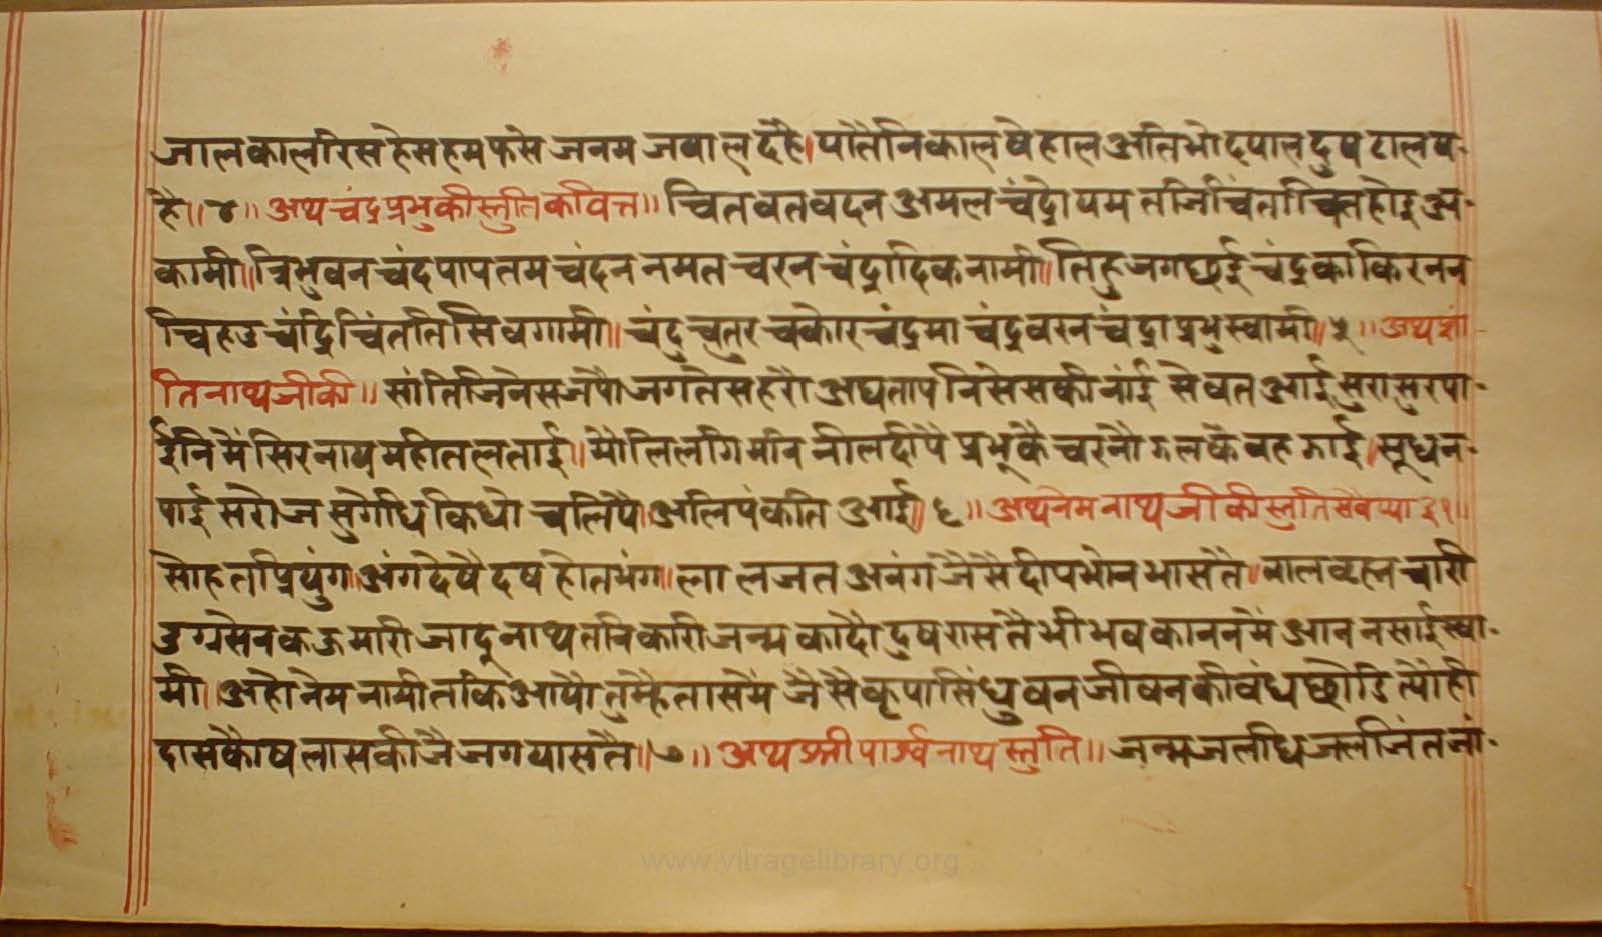 जाल काल रिस हेस हम फसे जनम जवाल दहै। पातैं निकाल षेहाल अति भो दयाल दुष टाल य-
है॥४॥ अथ चंद्रप्रभु की स्तुति कवित्त॥ चितवत वदन अमल चंद्रोपम तजि चिंता चित होइ अ-
कामी॥ त्रिभुवन चंद पाप तम चंदन नमत चरन चंद्रादिक नामी॥ तिहु जग छई चंद्रका किरनन
चिहउ चंद्रि चिंतति सिवगामी॥ चंदु चतुर चकोर चंद्रमा चंद्र वरन चंद्रा प्रभु स्वामी॥५॥ अथ शां
तिनाथ जी की॥ सांति जिनेस जपौ जगतेस हरौ अघताप निसेस की नांई सेवत आई सुरासुरपा-
ईनि मैं सिर नाय महीतल ताई॥ मौलि लगि मनि नील दीपै प्रभू कै चरनौ झलकै वह झाई॥ सूधन-
पाई सरोज सुगंधि किधो चलिपै॥ अलि पंकति आई॥६॥ अथ नेमनाथ जी की स्तुति सवैय्या ३१॥
सोहत प्रियंग॥ अंग देषै दष होत भंग॥ लालजत अनंग जैसै दीप भोन भासतै॥ बाल ब्रह्मचारी
उग्रसेन कऊमारी जादूनाथ तनिकारी जन्म कादौ दुषरास तै भी भव कानन मैं आन न साई स्वा-
मी॥ अहो नेम नामी तकि आयौ तुम्है तासमैं जैसै कृपासिंधु वन जीवन की वंध छोडि त्यौ ही
दास कौ षलास कीजै जगयासतै॥७॥ अथ श्री पार्श्वनाथ स्तुति॥ जन्म जलधि जल जिंत जां-
www.vitragelibrary.org